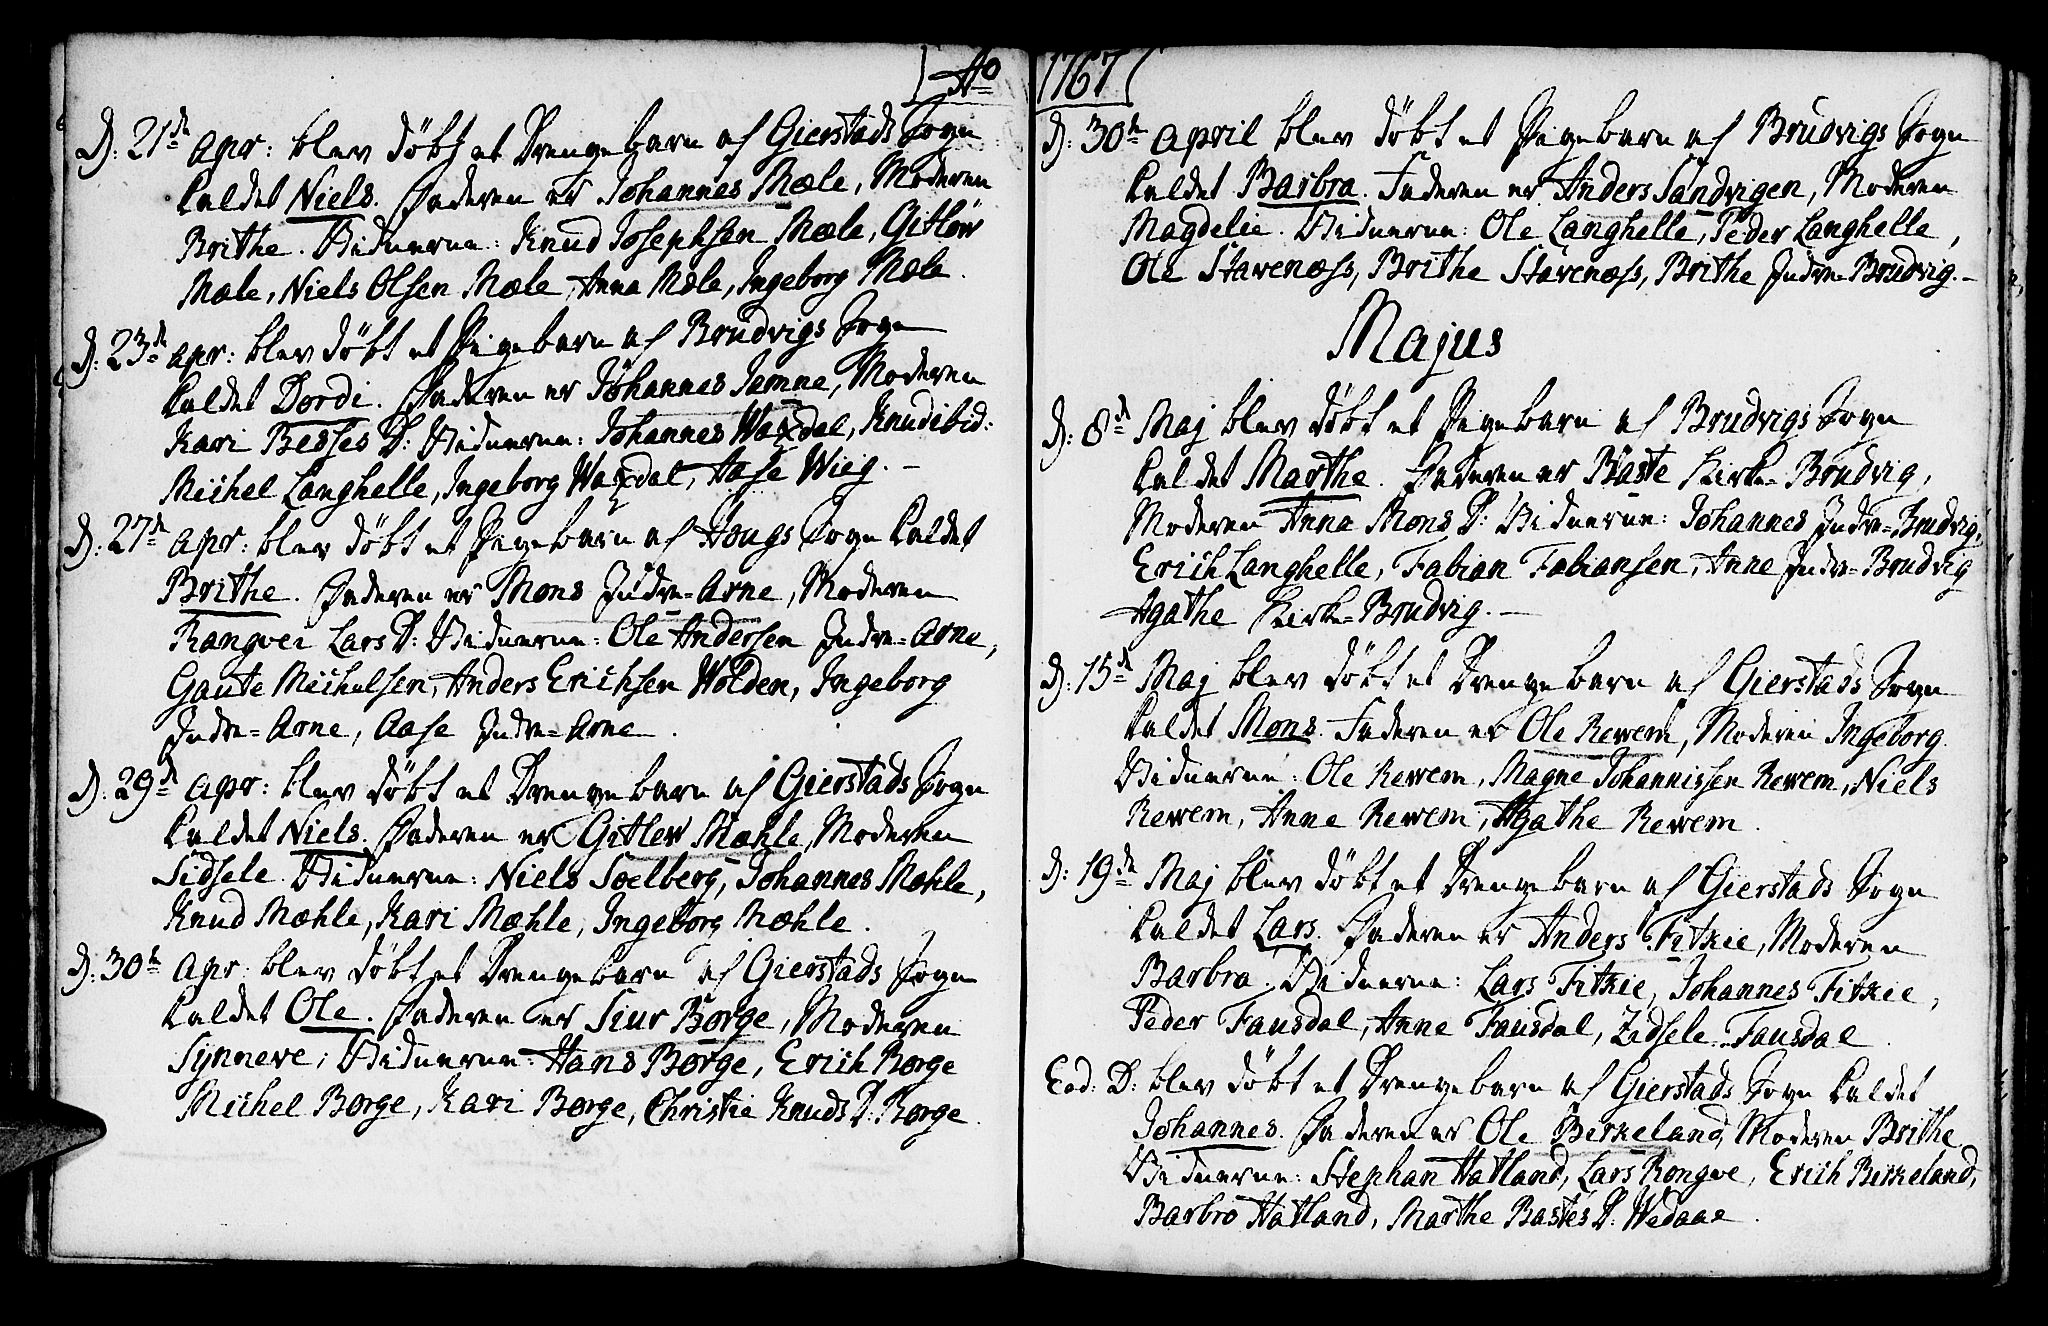 Ao
D: 21de Apr: blev døbt et Drengebarn af Gierstads Sogn
kaldet Niels. Faderen er Johannes Mæle, Moderen
Brithe. Vidnerne: Knud Josephsen Mæle, Gitløv
Mæle, Niels Olsen Mæle, Anna Mæle, Ingeborg Mæle.
D: 23de Apr: blev døbt et Pigebarn af Brudvigs Sogn
kaldet Dordi. Faderen er Johannes Jamne, Moderen
Kari Besses D: Vidnerne: Johannes Waxdal, Knud ibid:
Michel Langhelle, Ingeborg Waxdal, Aase Wieg.-
D: 27de Apr: blev døbt et Pigebarn af Hougs Sogn kaldet
Brithe. Faderen er Mons Indre=Arne, Moderen
Rangvei Lars D: Vidnerne: Ole Andersen Indre=Arne,
Gaute Michelsen, Anders Erichsen Wolden, Ingeborg
Indre=Arne, Aase Indre=Arne.
D: 29de Apr: blev døbt et Drengebarn af Gierstads Sogn
kaldet Niels. Faderen er Gitlew Mæhle, Moderen
Sidsele. Vidnerne: Niels Soelberg, Johannes Mæhle,
Knud Mæhle, Kari Mæhle, Ingeborg Mæhle.
D: 30te Apr: blev døbt et Drengebarn af Gierstads Sogn
kaldet Ole. Faderen er Siur Borge, Moderen
Synneve; Vidnerne: Hans Borge, Erich Borge
Michel Borge, Kari Borge, Christie Knuds D: Borge.
1767
D: 30te April blev døbt et Pigebarn af Brudvigs Sogn
kaldet Barbra. Faderen er Anders Sandvigen, Moderen
Magdelie. Vidnerne: Ole Langhelle, Peder Langhelle,
Ole Stavenæss, Brithe Stavenæss, Brithe Indre Brudvig.-
Majus
D: 8de Maj blev døbt et Pigebarn af Brudvigs Sogn
kaldet Marthe. Faderen er Baste Kirke=Brudvig,
Moderen Anna Mons D: Vidnerne: Johannes Indre=Brudvig,
Erich Langhelle, Fabian Fabiansen, Anne Indre=Brudvig
Agathe Kirke=Brudvig.-
D: 15de Maj blev døbt et Drengebarn af Gierstads Sogn
kaldet Mons. Faderen er Ole Rewem, Moderen Ingeborg.
Vidnerne: Ole Rewem, Magne Johannissen Rewem, Niels
Rewem, Anne Rewem, Agathe Rewem.
D: 19de Maj blev døbt et Drengebarn af Gierstads Sogn
kaldet Lars. Faderen er Anders Fitkie, Moderen
Barbra. Vidnerne: Lars Fitkie, Johannes Fitkie,
Peder Fausdal, Anne Fausdal, Zidsele Fausdal.
Eod: D: blev døbt et Drengebarn af Gierstads Sogn kaldet
Johannes. Faderen er Ole Berkeland, Moderen Brithe
Vidnerne: Stephan Hatland, Lars Rongve, Erich Birkeland,
Barbro Hatland, Marthe Bastes D: Wedaae.